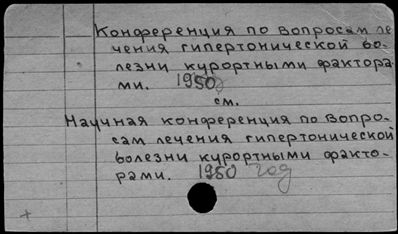 Конференция по вопросам ле
чения гипертонической бо-
лезни курортными фактора
ми. 1950
см.
Научная конференция по вопро-
сам лечения гипертонической
болезни курортными факто-
рами. 1950 год